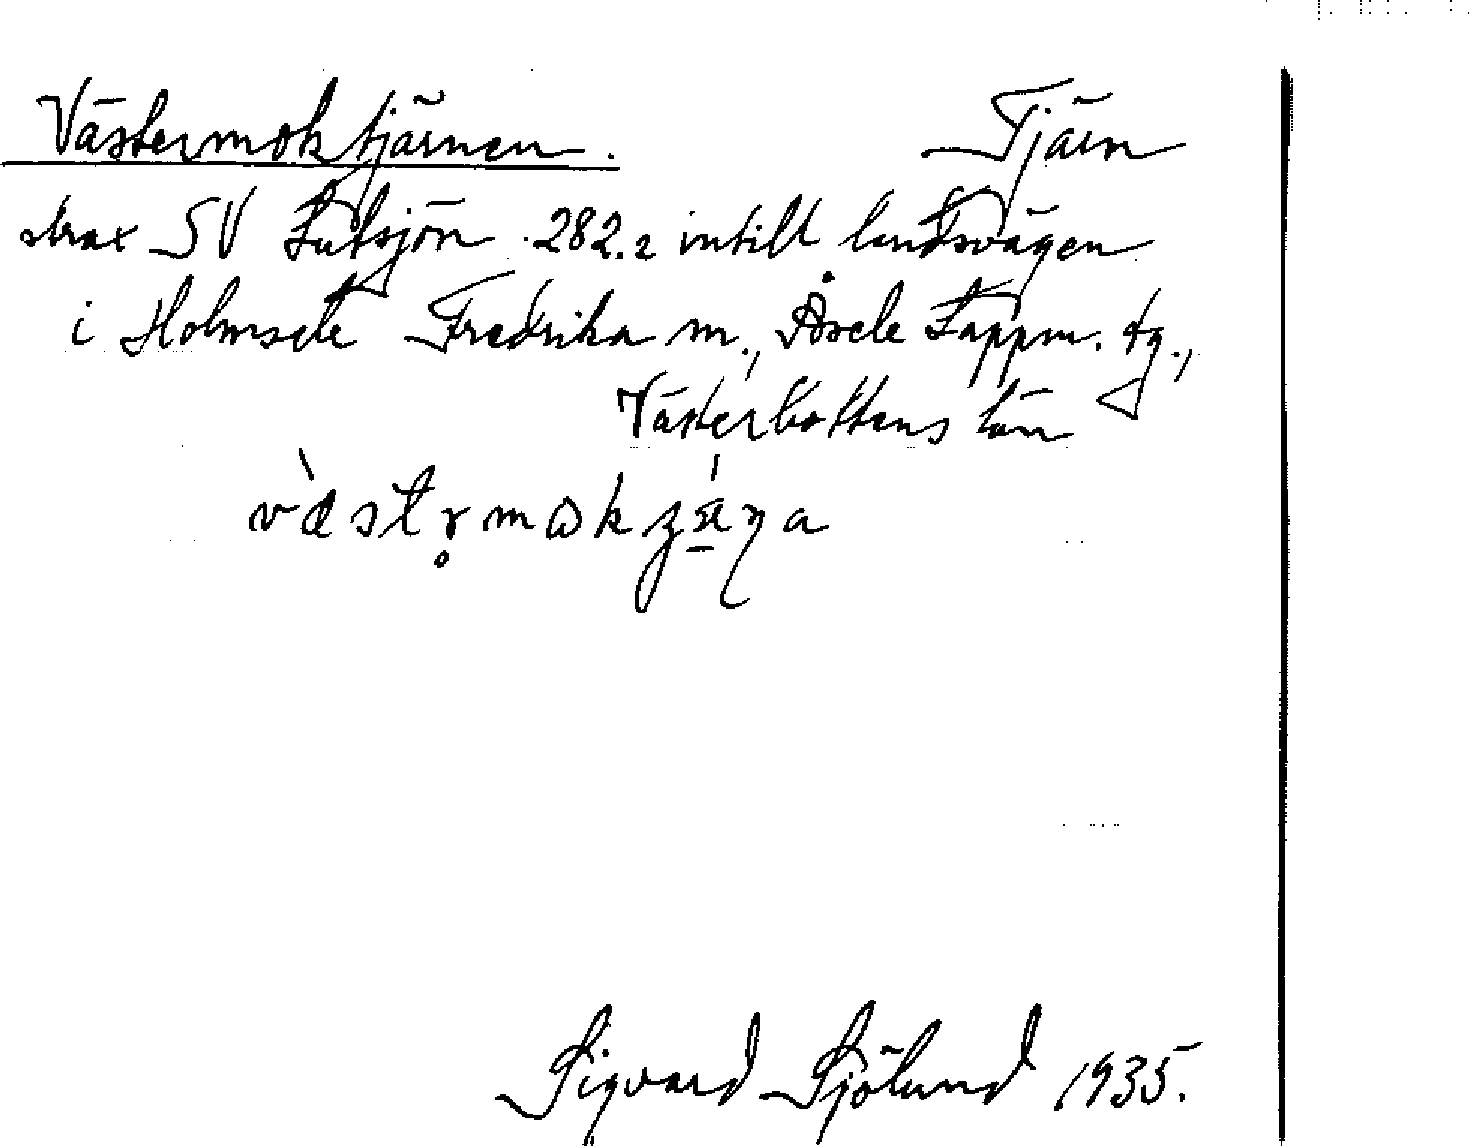 Västermoktjärnen. Tjärn
strax SV Lutsjön 282.2 intill landsvägen
i Holmsele Fredrika sn., Åsele Lappm. tg.,
Västerbottens län
Sigvard Sjölund 1935.